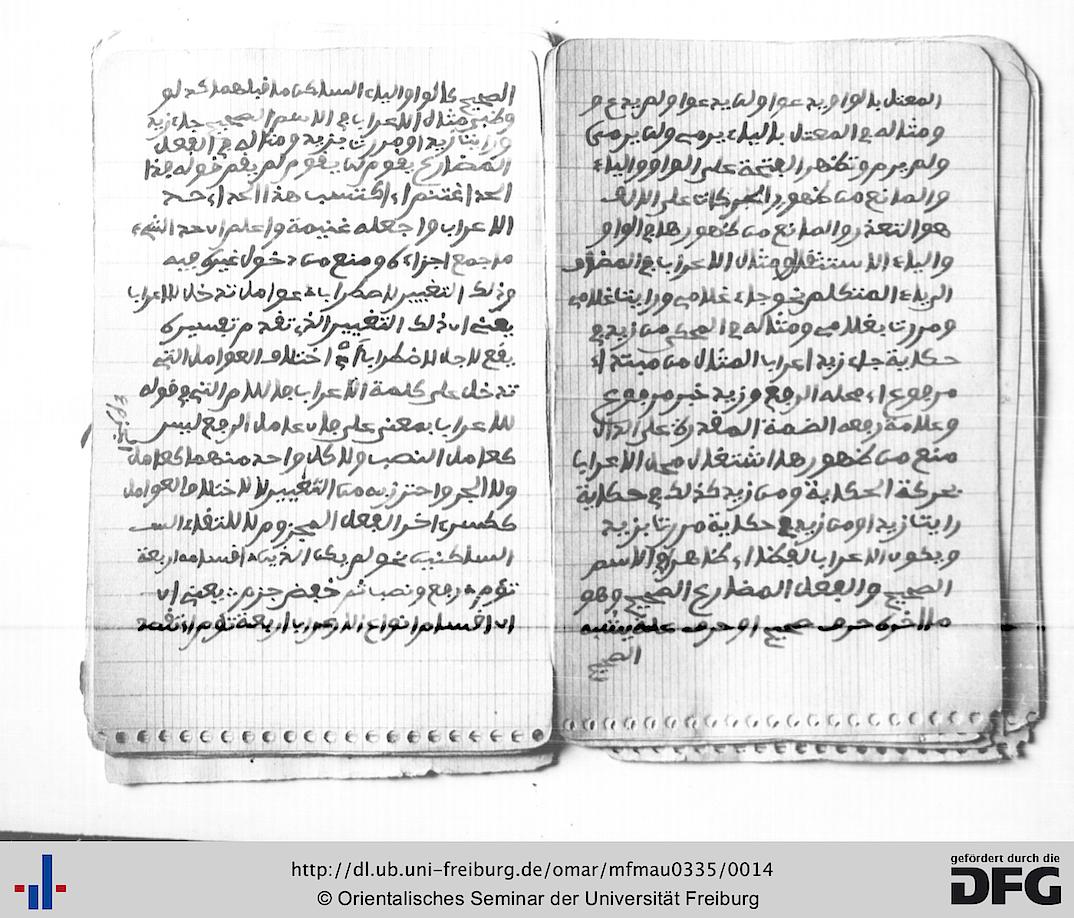 المعتل بالواو يدعوا ولن يدعوا ولم يدع و
ومثاله في المعتل بالياء يرمي ولن يرمي
ولم يرم وتظهر الفتحة على الواو والياء
والمانع من ظهور الحركات على الالف
هو التعذر والمانع من ظهورها في الواو
والياء الاستثقال ومثال الاعراب في المضاف
الى ياء المتكلم نحو جاء غلامي ورايت غلامي
ومررت بغلامي ومثاله في المحكي من زيد في
حكاية جاء زيد اعراب المثال من مبتدا
مرفوع اي محله الرفع وزيد خبر مرفوع
وعلامة رفعه الضمة المقدرة على الدال
منع من ظهورها اشتغال محل الاعراب
بحركة الحكاية ومن زيد كذلك في حكاية
رايت زيدا ومن زيد في حكاية مررت بزيد
ويكون الاعراب لفظا اي ظاهرا في الاسم
الصحيح والفعل المضارع الصحيح وهو
ما اخره حرف صحيح او حرف علة يشبه
الصحيح
الصحيح كالواو والياء الساكن ما قبلهما كدلو
وظبي مثال الاعراب في الاسم الصحيح جاء زيد
ورايت زيدا ومررت بزيد ومثاله في الفعل
المضارع يقوم لن يقوم لم يقم قوله هذا
الحد اغتنم اي اكتسب هذا الحد اي حد
الاعراب واجعله غنيمة واعلم ان حد الشيء
ما جمع اجزاءه ومنع من دخول غيره فيه
وذلك التغيير لاضطراب عوامل تدخل للاعراب
يعني ان ذلك التغيير الذي تقدم تفسيره
يقع لاجل لاضطراب اي اختلاف العوامل التي
تدخل على كلمة الاعراب فاللام التي في قوله
للاعراب بمعنى على لان عامل الرفع ليس
كعامل النصب ولا كل واحد منهما كعامل
ولا الجر واحترز به من التغيير لا لاختلاف العوامل
ككسر اخر الفعل المجزوم لالتقاء الـ
الساكنين نحو لم يكن الذين اقسامه اربعة
تؤم رفع ونصب ثم خفض جزم يعني ان
ان اقسام انواع الاعراب اربعة تؤم اي تقصد
http://dl.ub.uni-freiburg.de/omar/mfmau0335/0014
© Orientalisches Seminar der Universität Freiburg
gefördert durch die
DFG